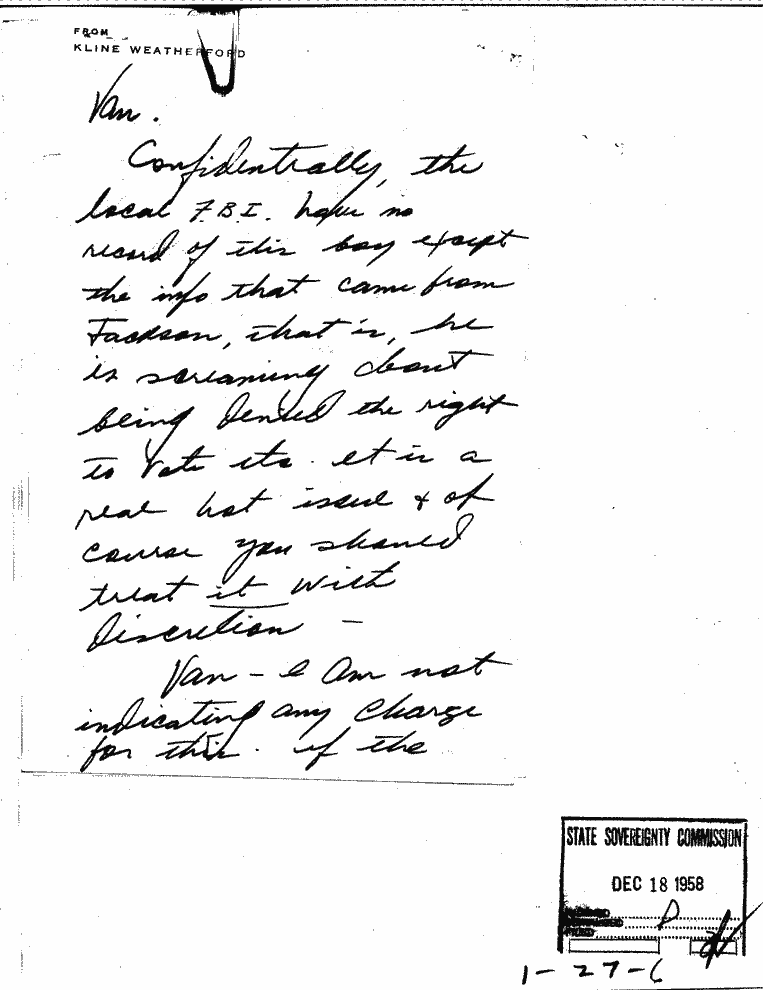 FROM
KLINE WEATHERFORD
Van.
Confidentrally, the
local F.B.I. have no
record of this boy except
the info that came from
Jackson, that is, he
is screaming about
being denied the right
to vote etc. It is a
real hot issue & of
course you should
treat it with
Discretion –
Van – I am not
indicating any charge
for this. if the
STATE SOVEREIGNTY COMMISSION
DEC 18 1958
1-27-6